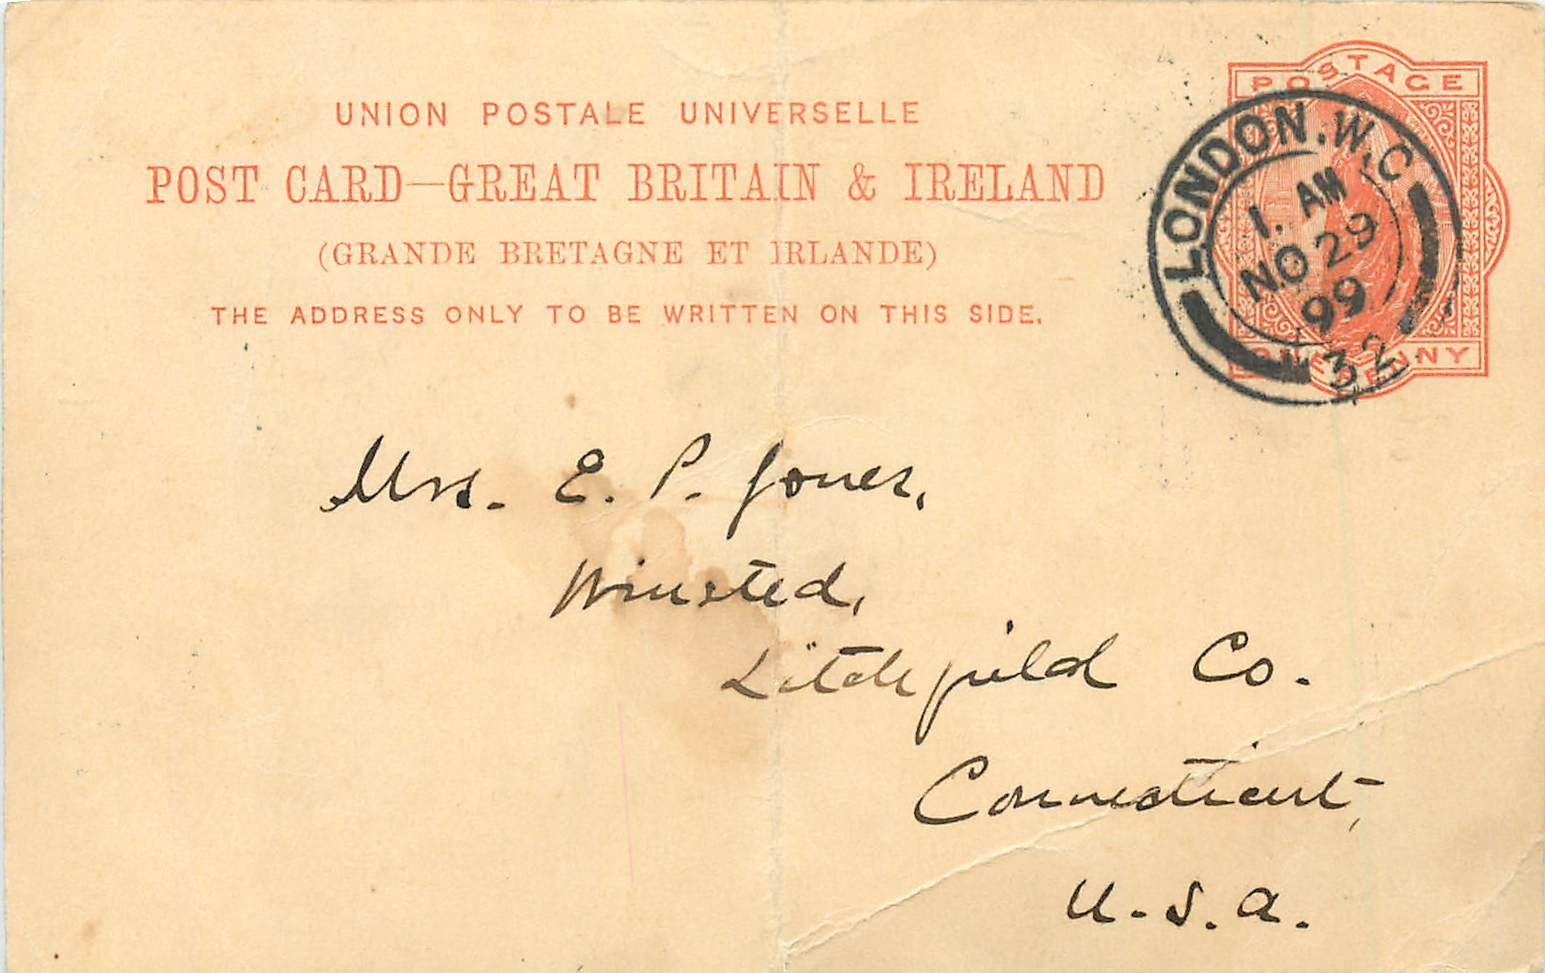 UNION POSTALE UNIVERSELLE
POST CARD—GREAT BRITAIN & IRELAND
(GRANDE BRETAGNE ET IRLANDE)
THE ADDRESS ONLY TO BE WRITTEN ON THIS SIDE.
POSTAGE
ONE PENNY
LONDON. W.C
1. AM
NO 29
99
32
Mrs. E. P. Jones,
Winsted,
Litchfield Co.
Connecticut,
U.S.A.